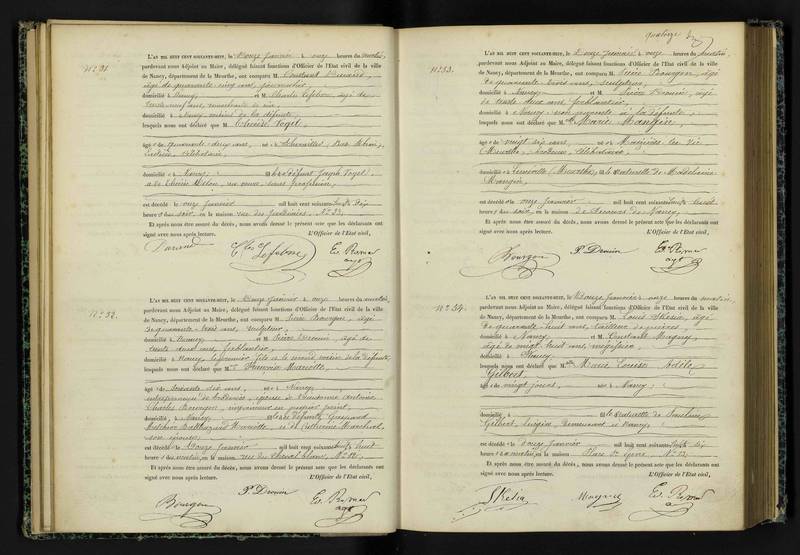 N° 31.
L'AN MIL HUIT CENT SOIXANTE-HUIT, le Douze Janvier à onze heures du matin,
pardevant nous Adjoint au Maire, délégué faisant fonctions d'Officier de l'Etat civil de la ville
de Nancy, département de la Meurthe, ont comparu M. Constant
âgé de quarante cinq ans, journalier
domicilié à Nancy et M. Charles Lefebvre, âgé de
trente neuf ans,
domicilié à Nancy de la défunte,
lesquels nous ont déclaré que M. Thérèse Vogel
âgé e de quarante deux ans, né e à Bas Rhin,
célibataire,
domicilié e à Nancy, fille de défunt Joseph Vogel,
et de Thérèse sa veuve, sans profession,
est décédé e le onze Janvier mil huit cent soixante-huit, à dix
heures du soir, en la maison rue des Jardiniers, N° 23,
Et après nous être assuré du décès, nous avons dressé le présent acte que les déclarants ont
signé avec nous après lecture. L'Officier de l'Etat civil,
Durand Ch. Lefebvre
N° 32.
L'AN MIL HUIT CENT SOIXANTE-HUIT, le Douze Janvier à onze heures du matin,
pardevant nous Adjoint au Maire, délégué faisant fonctions d'Officier de l'Etat civil de la ville
de Nancy, département de la Meurthe, ont comparu M. Pierre Bourgon, âgé
de quarante trois ans, sculpteur,
domicilié à Nancy et M. Pierre Drouin, âgé de
trente deux ans, ferblantier,
domicilié à Nancy, le premier fils et le second voisin de la défunte,
lesquels nous ont déclaré que M. Françoise Mariotte,
âgé e de soixante dix ans, né e à Nancy,
entrepreneuse de broderies, épouse de Antoine
Charles Bourgon,
domicilié e à Nancy, fille de défunts
Melchior Balthazard Mariotte, et de Catherine Marchal,
son épouse,
est décédé e le Douze Janvier mil huit cent soixante-huit, à huit
heures du matin, en la maison rue du Cheval blanc, N° 12,
Et après nous être assuré du décès, nous avons dressé le présent acte que les déclarants ont
signé avec nous après lecture. L'Officier de l'Etat civil,
Bourgon P. Drouin
quatorze
N° 33.
L'AN MIL HUIT CENT SOIXANTE-HUIT, le Douze Janvier à onze heures du matin,
pardevant nous Adjoint au Maire, délégué faisant fonctions d'Officier de l'Etat civil de la ville
de Nancy, département de la Meurthe, ont comparu M. Pierre Bourgon, âgé
de quarante trois ans, sculpteur,
domicilié à Nancy et M. Pierre Drouin, âgé
de trente deux ans, ferblantier,
domicilié à Nancy non parents à la défunte,
lesquels nous ont déclaré que M. Marie Mangin,
âgé e de vingt six ans, né e à
(Meurthe), brodeuse, célibataire,
domicilié e à (Meurthe), fille naturelle de Madeleine
Mangin,
est décédé e le onze Janvier mil huit cent soixante-huit, à huit
heures du soir, en la maison de Secours de Nancy,
Et après nous être assuré du décès, nous avons dressé le présent acte que les déclarants ont
signé avec nous après lecture. L'Officier de l'Etat civil,
Bourgon P. Drouin
N° 34.
L'AN MIL HUIT CENT SOIXANTE-HUIT, le Douze Janvier à onze heures du matin,
pardevant nous Adjoint au Maire, délégué faisant fonctions d'Officier de l'Etat civil de la ville
de Nancy, département de la Meurthe, ont comparu M. Louis âgé
de quarante huit ans, tailleur de pierres,
domicilié à Nancy et M. Constant
âgé de vingt huit ans, négociant,
domicilié à Nancy
lesquels nous ont déclaré que M. Marie Louise Adèle
Gilbert,
âgé e de vingt jours, né e à Nancy,
domicilié e à fille naturelle de
Gilbert, demeurant à Nancy,
est décédé e le Douze Janvier mil huit cent soixante-huit, à six
heures du matin, en la maison Place St. Epvre, N° 12,
Et après nous être assuré du décès, nous avons dressé le présent acte que les déclarants ont
signé avec nous après lecture. L'Officier de l'Etat civil,